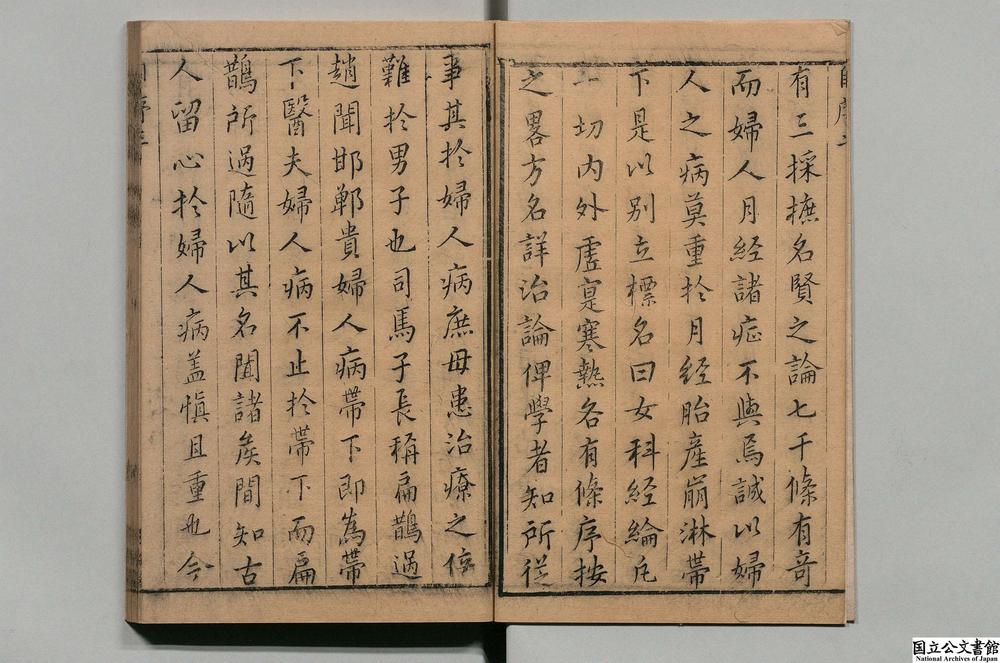 有三採摭名賢之論七千條有竒
而婦人月經諸症不與焉誠以婦
人之病莫重於月經胎產崩淋帶
下是以别立標名曰女科經綸凡
一切內外虛寔寒熱各有條序按
之畧方名詳治論俾學者知所從
事其於婦人病庶毋患治療之倍
難於男子也司馬子長稱扁鵲過
趙聞邯鄲貴婦人病帶下即為帶
下醫夫婦人病不止於帶下而扁
鵲所過隨以其名聞諸矦間知古
人留心於婦人病盖慎且重也今
国立公文書館
National Archives of Japan